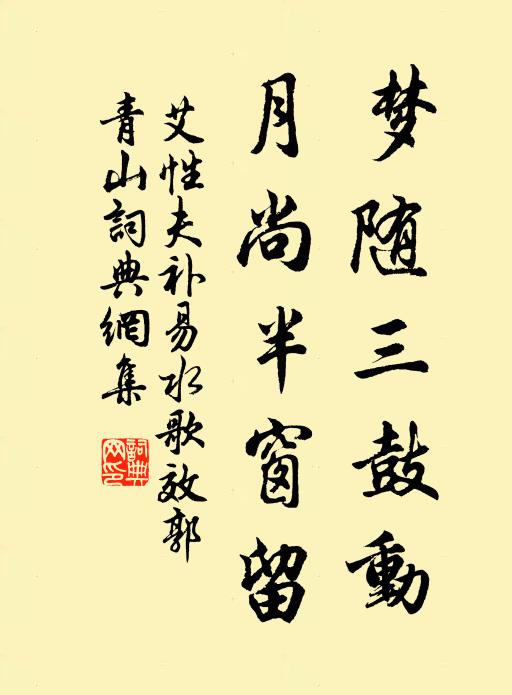 梦随三鼓動
月尚半窗留
艾性夫补易水歌效郭
青山詞典網集
詞典网印